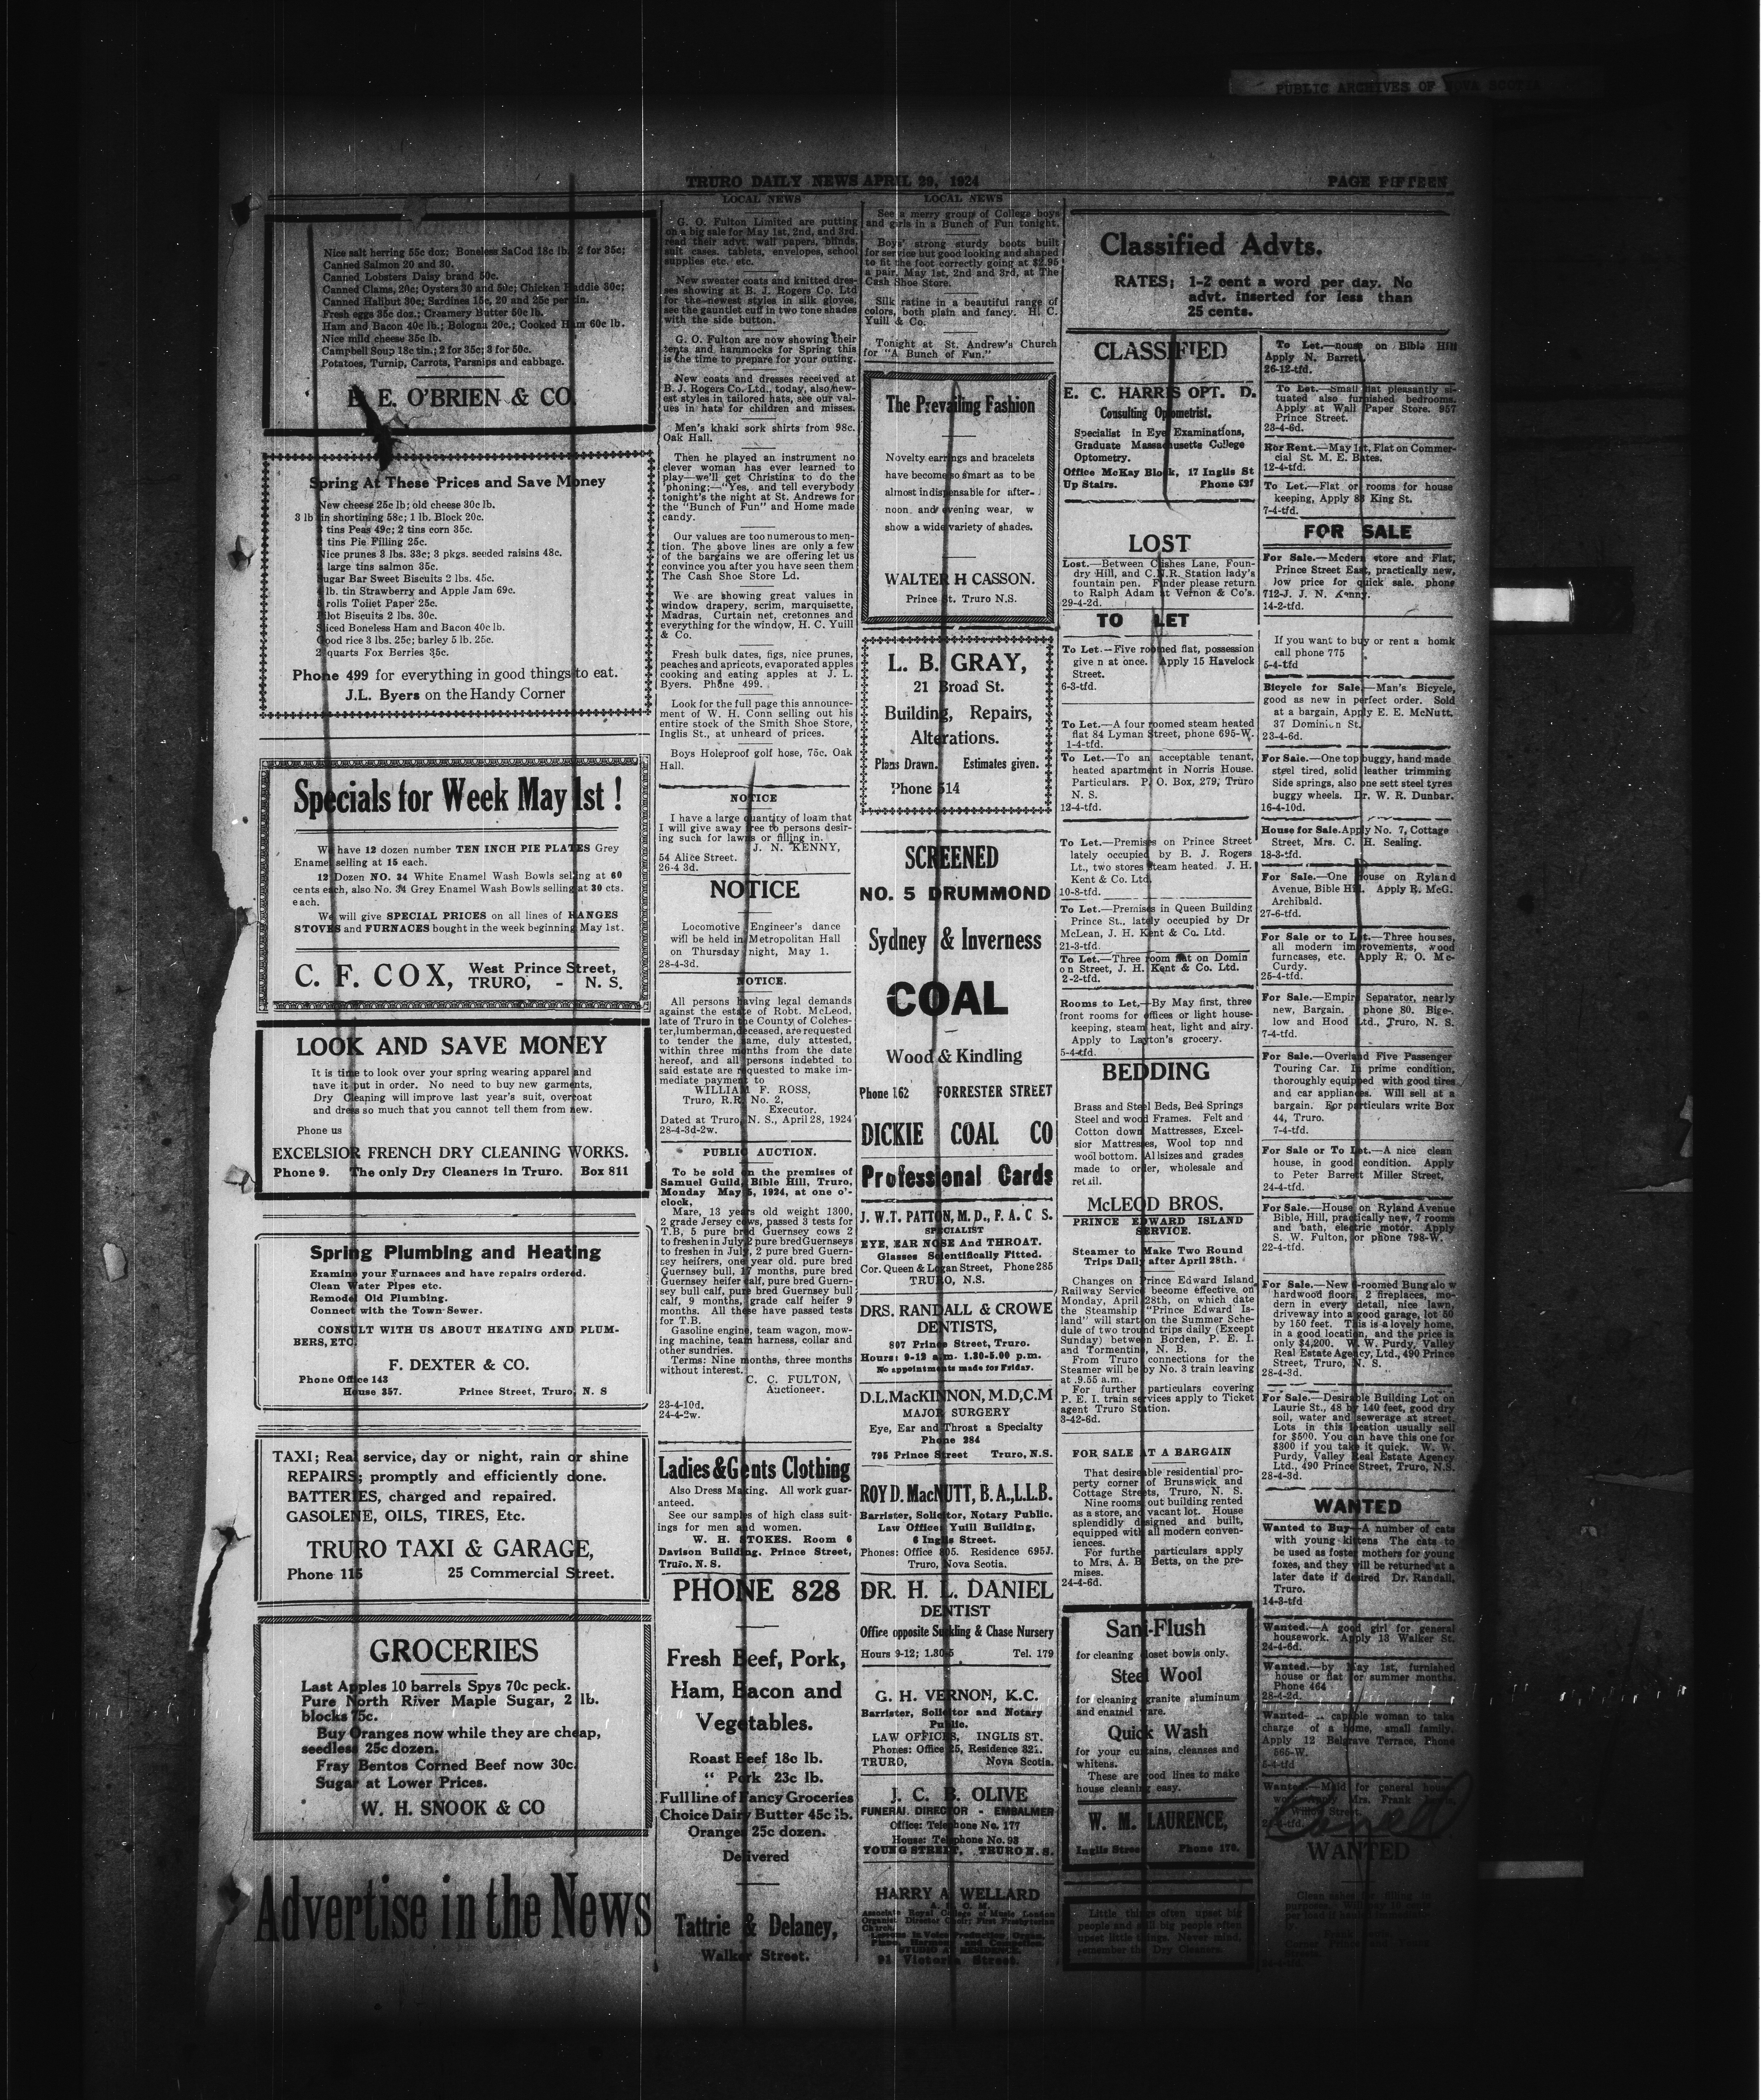 PUBLIC ARCHIVES OF NOVA SCOTIA
TRURO DAILY NEWS APRIL 29, 1924
PAGE FIFTEEN
Nice salt herring 55c doz; Boneless SaCod 18c lb. 2 for 35c;
Canned Salmon 20 and 30.
Canned Lobsters Daisy brand 50c.
Canned Clams, 20c; Oysters 30 and 50c; Chicken Haddie 30c;
Canned Halibut 30c; Sardines 15c, 20 and 25c per tin.
Fresh eggs 35c doz.; Creamery Butter 50c lb.
Ham and Bacon 40c lb.; Bologna 20c.; Cooked Ham 60c lb.
Nice mild cheese 35c lb.
Campbell Soup 18c tin.; 2 for 35c; 3 for 50c.
Potatoes, Turnip, Carrots, Parsnips and cabbage.
E. O'BRIEN & CO.
Spring At These Prices and Save Money
New cheese 25c lb; old cheese 30c lb.
3 lb tin shortining 58c; 1 lb. Block 20c.
tins Peas 49c; 2 tins corn 35c.
tins Pie Filling 25c.
Nice prunes 3 lbs. 33c; 3 pkgs. seeded raisins 48c.
large tins salmon 35c.
Sugar Bar Sweet Biscuits 2 lbs. 45c.
lb. tin Strawberry and Apple Jam 69c.
rolls Toilet Paper 25c.
Pilot Biscuits 2 lbs. 30c.
Sliced Boneless Ham and Bacon 40c lb.
Good rice 3 lbs. 25c; barley 5 lb. 25c.
2 quarts Fox Berries 35c.
Phone 499 for everything in good things to eat.
J.L. Byers on the Handy Corner
Specials for Week May 1st !
We have 12 dozen number TEN INCH PIE PLATES Grey
Enamel selling at 15 each.
12 Dozen NO. 34 White Enamel Wash Bowls selling at 60
cents each, also No. 34 Grey Enamel Wash Bowls selling at 30 cts.
each.
We will give SPECIAL PRICES on all lines of RANGES
STOVES and FURNACES bought in the week beginning May 1st.
C. F. COX, West Prince Street,
TRURO, - N. S.
LOOK AND SAVE MONEY
It is time to look over your spring wearing apparel and
have it put in order. No need to buy new garments,
Dry Cleaning will improve last year's suit, overcoat
and dress so much that you cannot tell them from new.
Phone us
EXCELSIOR FRENCH DRY CLEANING WORKS.
Phone 9. The only Dry Cleaners in Truro. Box 811
Spring Plumbing and Heating
Examine your Furnaces and have repairs ordered.
Clean Water Pipes etc.
Remodel Old Plumbing.
Connect with the Town Sewer.
CONSULT WITH US ABOUT HEATING AND PLUM-
BERS, ETC.
F. DEXTER & CO.
Phone Office 143
House 357. Prince Street, Truro, N. S
TAXI; Real service, day or night, rain or shine
REPAIRS; promptly and efficiently done.
BATTERIES, charged and repaired.
GASOLENE, OILS, TIRES, Etc.
TRURO TAXI & GARAGE,
Phone 115 25 Commercial Street.
GROCERIES
Last Apples 10 barrels Spys 70c peck.
Pure North River Maple Sugar, 2 lb.
blocks 75c.
Buy Oranges now while they are cheap,
seedless 25c dozen.
Fray Bentos Corned Beef now 30c.
Sugar at Lower Prices.
W. H. SNOOK & CO
Advertise in the News
LOCAL NEWS
G. O. Fulton Limited are putting
on a big sale for May 1st, 2nd, and 3rd.
read their advt. wall papers, blinds,
suit cases, tablets, envelopes, school
supplies etc. etc.
New sweater coats and knitted dres-
ses showing at B. J. Rogers Co. Ltd
for the newest styles in silk gloves,
see the gauntlet cuff in two tone shades
with the side button.
G. O. Fulton are now showing their
tents and hammocks for Spring this
is the time to prepare for your outing.
New coats and dresses received at
B. J. Rogers Co. Ltd., today, also new-
est styles in tailored hats, see our val-
ues in hats for children and misses.
Men's khaki sork shirts from 98c.
Oak Hall.
Then he played an instrument no
clever woman has ever learned to
play—we'll get Christina to do the
'phoning;—"Yes, and tell everybody
tonight's the night at St. Andrews for
the "Bunch of Fun" and Home made
candy.
Our values are too numerous to men-
tion. The above lines are only a few
of the bargains we are offering let us
convince you after you have seen them
The Cash Shoe Store Ld.
We are showing great values in
window drapery, scrim, marquisette,
Madras, Curtain net, cretonnes and
everything for the window, H. C. Yuill
& Co.
Fresh bulk dates, figs, nice prunes,
peaches and apricots, evaporated apples
cooking and eating apples at J. L.
Byers. Phone 499.
Look for the full page this announce-
ment of W. H. Conn selling out his
entire stock of the Smith Shoe Store,
Inglis St., at unheard of prices.
Boys Holeproof golf hose, 75c. Oak
Hall.
NOTICE
I have a large quantity of loam that
I will give away free to persons desir-
ing such for lawns or filling in.
J. N. KENNY,
54 Alice Street.
26-4 3d.
NOTICE
Locomotive Engineer's dance
will be held in Metropolitan Hall
on Thursday night, May 1.
28-4-3d.
NOTICE.
All persons having legal demands
against the estate of Robt. McLeod,
late of Truro in the County of Colches-
ter, lumberman, deceased, are requested
to tender the same, duly attested,
within three months from the date
hereof, and all persons indebted to
said estate are requested to make im-
mediate payment to
WILLIAM F. ROSS,
Truro, R.R. No. 2,
Executor.
Dated at Truro, N. S., April 28, 1924
28-4-3d-2w.
PUBLIC AUCTION.
To be sold on the premises of
Samuel Guild, Bible Hill, Truro,
Monday May 5, 1924, at one o'-
clock,
Mare, 13 years old weight 1300,
2 grade Jersey cows, passed 3 tests for
T.B, 5 pure bred Guernsey cows 2
to freshen in July, 2 pure bred Guernseys
to freshen in July, 2 pure bred Guern-
sey heifrers, one year old. pure bred
Guernsey bull, 17 months, pure bred
Guernsey heifer calf, pure bred Guern-
sey bull calf, pure bred Guernsey bull
calf, 9 months, grade calf heifer 9
months. All these have passed tests
for T.B.
Gasoline engine, team wagon, mow-
ing machine, team harness, collar and
other sundries.
Terms: Nine months, three months
without interest.
C. C. FULTON,
Auctioneer.
23-4-10d.
24-4-2w.
Ladies & Gents Clothing
Also Dress Making. All work guar-
anteed.
See our samples of high class suit-
ings for men and women.
W. H. STOKES. Room 6
Davison Building. Prince Street,
Truro. N. S.
PHONE 828
Fresh Beef, Pork,
Ham, Bacon and
Vegetables.
Roast Beef 18c lb.
" Pork 23c lb.
Full line of Fancy Groceries
Choice Dairy Butter 45c lb.
Oranges 25c dozen.
Delivered
Tattrie & Delaney,
Walker Street.
LOCAL NEWS
See a merry group of College boys
and girls in a Bunch of Fun tonight.
Boys' strong sturdy boots built
for service but good looking and shaped
to fit the foot correctly going at $2.95
a pair. May 1st, 2nd and 3rd, at The
Cash Shoe Store.
Silk ratine in a beautiful range of
colors, both plain and fancy. H. C.
Yuill & Co.
Tonight at St. Andrew's Church
for "A Bunch of Fun."
The Prevailing Fashion
Novelty earrings and bracelets
have become so smart as to be
almost indispensable for after-
noon and evening wear, w
show a wide variety of shades.
WALTER H CASSON.
Prince St. Truro N.S.
L. B. GRAY,
21 Broad St.
Building, Repairs,
Alterations.
Plans Drawn. Estimates given.
Phone 514
SCREENED
NO. 5 DRUMMOND
Sydney & Inverness
COAL
Wood & Kindling
Phone 162 FORRESTER STREET
DICKIE COAL CO
Professional Cards
J. W.T. PATTON, M. D., F. A. C S.
SPECIALIST
EYE, EAR NOSE And THROAT.
Glasses Scientifically Fitted.
Cor. Queen & Logan Street, Phone 285
TRURO, N.S.
DRS. RANDALL & CROWE
DENTISTS,
807 Prince Street, Truro.
Hours: 9-12 a.m. 1.30-5.00 p.m.
No appointments made for Friday.
D.L. MacKINNON, M.D,C.M
MAJOR SURGERY
Eye, Ear and Throat a Specialty
Phone 284
795 Prince Street Truro, N.S.
ROY D. MacNUTT, B. A., L.L.B.
Barrister, Solicitor, Notary Public.
Law Office: Yuill Building,
6 Inglis Street.
Phones: Office 805. Residence 695J.
Truro, Nova Scotia.
DR. H. L. DANIEL
DENTIST
Office opposite Suckling & Chase Nursery
Hours 9-12; 1.30-5 Tel. 179
G. H. VERNON, K.C.
Barrister, Solicitor and Notary
Public.
LAW OFFICES, INGLIS ST.
Phones: Office 25, Residence 321.
TRURO, Nova Scotia.
J. C. B. OLIVE
FUNERAL DIRECTOR - EMBALMER
Office: Telephone No. 177
House: Telephone No. 93
YOUNG STREET, TRURO N. S.
HARRY A. WELLARD
Associate Royal College of Music London
Organist Director Choir; First Presbyterian
Church.
Lessons in Voice Production, Organ,
STUDIO AT RESIDENCE.
91 Victoria Street.
Classified Advts.
RATES; 1-2 cent a word per day. No
advt. inserted for less than
25 cents.
CLASSIFIED
E. C. HARRIS OPT. D.
Consulting Optometrist.
Specialist in Eye Examinations,
Graduate Massachusetts College
Optometry.
Office McKay Block, 17 Inglis St
Up Stairs. Phone 537
LOST
Lost.—Between Clishes Lane, Foun-
dry Hill, and C.N.R. Station lady's
fountain pen. Finder please return
to Ralph Adam at Vernon & Co's.
29-4-2d.
TO LET
To Let.—Five roomed flat, possession
give n at once. Apply 15 Havelock
Street.
6-3-tfd.
To Let.—A four roomed steam heated
flat 84 Lyman Street, phone 695-W.
1-4-tfd.
To Let.—To an acceptable tenant,
heated apartment in Norris House.
Particulars. P. O. Box, 279, Truro
N. S.
12-4-tfd.
To Let.—Premises on Prince Street
lately occupied by B. J. Rogers
Lt., two stores steam heated. J. H.
Kent & Co. Ltd.
10-8-tfd.
To Let.—Premises in Queen Building
Prince St., lately occupied by Dr
McLean, J. H. Kent & Co. Ltd.
21-3-tfd.
To Let.—Three room flat on Domin
on Street, J. H. Kent & Co. Ltd.
2-2-tfd.
Rooms to Let,—By May first, three
front rooms for offices or light house-
keeping, steam heat, light and airy.
Apply to Layton's grocery.
5-4-tfd.
BEDDING
Brass and Steel Beds, Bed Springs
Steel and wood Frames. Felt and
Cotton down Mattresses, Excel-
sior Mattresses, Wool top nnd
wool bottom. All sizes and grades
made to order, wholesale and
retail.
McLEOD BROS.
PRINCE EDWARD ISLAND
SERVICE.
Steamer to Make Two Round
Trips Daily after April 28th.
Changes on Prince Edward Island
Railway Service become effective on
Monday, April 28th, on which date
the Steamship "Prince Edward Is-
land" will start on the Summer Sche-
dule of two tround trips daily (Except
Sunday) between Borden, P. E. I.
and Tormentine, N. B.
From Truro connections for the
Steamer will be by No. 3 train leaving
at .9.55 a.m.
For further particulars covering
P. E. I. train services apply to Ticket
agent Truro Station.
3-42-6d.
FOR SALE AT A BARGAIN
That desireable residential pro-
perty corner of Brunswick and
Cottage Streets, Truro, N. S.
Nine rooms out building rented
as a store, and vacant lot. House
splendidly designed and built,
equipped with all modern conven-
iences.
For further particulars apply
to Mrs. A. B. Betts, on the pre-
mises.
24-4-6d.
Sani-Flush
for cleaning closet bowls only.
Steel Wool
for cleaning granite aluminum
and enamel ware.
Quick Wash
for your curtains, cleanses and
whitens.
These are good lines to make
house cleaning easy.
W. M. LAURENCE,
Inglis Street Phone 170.
Little things often upset big
people and still big people often
upset little things. Never mind,
remember the Dry Cleaners.
To Let.—house on Bible Hill
Apply N. Barrett,
26-12-tfd.
To Let.—Small flat pleasantly si-
tuated also furnished bedrooms.
Apply at Wall Paper Store. 957
Prince Street.
23-4-6d.
Ror Rent.—May 1st, Flat on Commer-
cial St. M. E. Bates.
12-4-tfd.
To Let.—Flat or rooms for house
keeping, Apply 88 King St.
7-4-tfd.
FOR SALE
For Sale.—Modern store and Flat,
Prince Street East, practically new,
low price for quick sale. phone
712-J. J. N. Kenny.
14-2-tfd.
If you want to buy or rent a homk
call phone 775
5-4-tfd
Bicycle for Sale.—Man's Bicycle,
good as new in perfect order. Sold
at a bargain, Apply E. E. McNutt.
37 Dominion St.
23-4-6d.
For Sale.—One top buggy, hand made
steel tired, solid leather trimming
Side springs, also one sett steel tyres
buggy wheels. Dr. W. R. Dunbar.
16-4-10d.
House for Sale. Apply No. 7, Cottage
Street, Mrs. C. H. Sealing.
18-3-tfd.
For Sale.—One House on Ryland
Avenue, Bible Hill. Apply R. McG.
Archibald.
27-6-tfd.
For Sale or to Let.—Three houses,
all modern improvements, wood
furncases, etc. Apply R. O. Mc-
Curdy.
25-4-tfd.
For Sale.—Empire Separator, nearly
new, Bargain. phone 80. Bige-
low and Hood Ltd., Truro, N. S.
7-4-tfd.
For Sale.—Overland Five Passenger
Touring Car. In prime condition,
thoroughly equipped with good tires
and car appliances. Will sell at a
bargain. For particulars write Box
44, Truro.
7-4-tfd.
For Sale or To Let.—A nice clean
house, in good condition. Apply
to Peter Barrett Miller Street,
24-4-tfd.
For Sale.—House on Ryland Avenue
Bible, Hill, practically new, 7 rooms
and bath, electric motor. Apply
S. W. Fulton, or phone 798-W.
22-4-tfd.
For Sale.—New 6-roomed Bungalow
hardwood floors, 2 fireplaces, mo-
dern in every detail, nice lawn,
driveway into a good garage, lot 50
by 150 feet. This is a lovely home,
in a good location, and the price is
only $4,200. W. W. Purdy, Valley
Real Estate Agency, Ltd., 490 Prince
Street, Truro, N. S.
28-4-3d.
For Sale.—Desirable Building Lot on
Laurie St., 48 by 140 feet, good dry
soil, water and sewerage at street.
Lots in this location usually sell
for $500. You can have this one for
$300 if you take it quick. W. W.
Purdy, Valley Real Estate Agency
Ltd., 490 Prince Street, Truro, N.S.
28-4-3d.
WANTED
Wanted to Buy—A number of cats
with young kittens The cats to
be used as foster mothers for young
foxes, and they will be returned at a
later date if desired Dr. Randall,
Truro.
14-3-tfd
Wanted.—A good girl for general
housework. Apply 13 Walker St.
24-4-6d.
Wanted.—by May 1st, furnished
house or flat for summer months.
Phone 464
28-4-2d.
Wanted- capable woman to take
charge of a home, small family.
Apply 12 Belgrave Terrace, Phone
565-W.
5-4-tfd
Wanted.—Maid for general house
work Apply Mrs. Frank
Willow Street.
WANTED